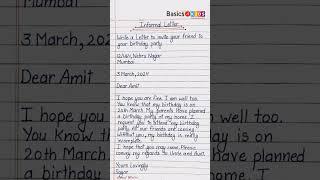 Basics 4 KIDS
Informal Letter
Write a Letter to invite your friend to
your birthday party.
Nehru Nagar
Mumbai
3 March, 2024
Dear Amit
I hope you are fine. I am well too.
You know that my birthday is on
20th March. My parents have planned
a birthday party at my home. I
request you to attend my birthday
party. All our friends are coming.
Without you, my birthday is really
incomplete.
I hope that you may come. Please
convey my regards to Uncle and Aunt.
Yours Lovingly
Sagar
Mumbai
3 March, 202
Dear Amit
I hope you
You know
20th March
a birthday
well too.
is on
planned
I